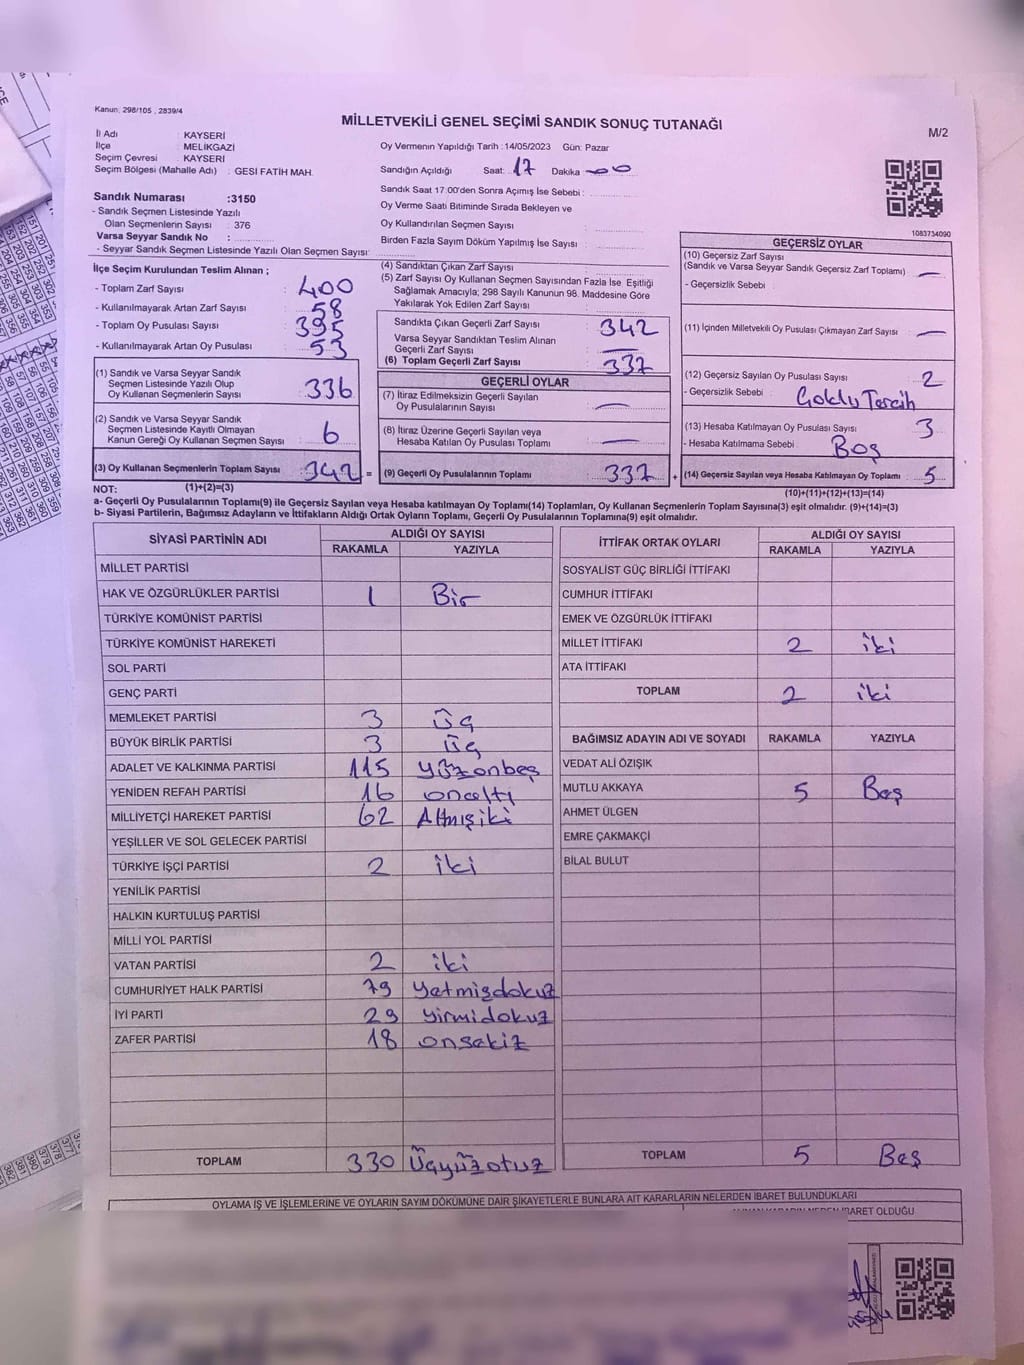 Kanun: 298/105 , 2839/4
MİLLETVEKİLİ GENEL SEÇİMİ SANDIK SONUÇ TUTANAĞI
M/2
İl Adı : KAYSERİ
İlçe : MELİKGAZİ
Seçim Çevresi : KAYSERİ
Seçim Bölgesi (Mahalle Adı) : GESİ FATİH MAH.
Oy Vermenin Yapıldığı Tarih :14/05/2023 Gün: Pazar
Sandığın Açıldığı Saat: 17 Dakika 00
Sandık Saat 17:00'den Sonra Açımış İse Sebebi :
Oy Verme Saati Bitiminde Sırada Bekleyen ve
Oy Kullandırılan Seçmen Sayısı
Birden Fazla Sayım Döküm Yapılmış İse Sayısı :
Sandık Numarası :3150
- Sandık Seçmen Listesinde Yazılı
Olan Seçmenlerin Sayısı : 376
Varsa Seyyar Sandık No :
- Seyyar Sandık Seçmen Listesinde Yazılı Olan Seçmen Sayısı:
1083734090
İlçe Seçim Kurulundan Teslim Alınan ;
- Toplam Zarf Sayısı : 400
- Kullanılmayarak Artan Zarf Sayısı : 58
- Toplam Oy Pusulası Sayısı : 395
- Kullanılmayarak Artan Oy Pusulası : 53
(1) Sandık ve Varsa Seyyar Sandık
Seçmen Listesinde Yazılı Olup
Oy Kullanan Seçmenlerin Sayısı : 336
(2) Sandık ve Varsa Seyyar Sandık
Seçmen Listesinde Kayıtlı Olmayan
Kanun Gereği Oy Kullanan Seçmen Sayısı : 6
(3) Oy Kullanan Seçmenlerin Toplam Sayısı : 342 =
(1)+(2)=(3)
(4) Sandıktan Çıkan Zarf Sayısı
(5) Zarf Sayısı Oy Kullanan Seçmen Sayısından Fazla İse Eşitliği
Sağlamak Amacıyla; 298 Sayılı Kanunun 98. Maddesine Göre
Yakılarak Yok Edilen Zarf Sayısı
Sandıkta Çıkan Geçerli Zarf Sayısı : 342
Varsa Seyyar Sandıktan Teslim Alınan
Geçerli Zarf Sayısı : —
(6) Toplam Geçerli Zarf Sayısı : 337
GEÇERLİ OYLAR
(7) İtiraz Edilmeksizin Geçerli Sayılan
Oy Pusulalarının Sayısı : —
(8) İtiraz Üzerine Geçerli Sayılan veya
Hesaba Katılan Oy Pusulası Toplamı : —
(9) Geçerli Oy Pusulalarının Toplamı : 337 +
GEÇERSİZ OYLAR
(10) Geçersiz Zarf Sayısı
(Sandık ve Varsa Seyyar Sandık Geçersiz Zarf Toplamı) —
- Geçersizlik Sebebi :
(11) İçinden Milletvekili Oy Pusulası Çıkmayan Zarf Sayısı : —
(12) Geçersiz Sayılan Oy Pusulası Sayısı : 2
- Geçersizlik Sebebi : Çoklu Tercih
(13) Hesaba Katılmayan Oy Pusulası Sayısı : 3
- Hesaba Katılmama Sebebi : Boş
(14) Geçersiz Sayılan veya Hesaba Katılmayan Oy Pusulası Toplamı : 5
(10)+(11)+(12)+(13)=(14)
NOT:
a- Geçerli Oy Pusulalarının Toplamı(9) ile Geçersiz Sayılan veya Hesaba katılmayan Oy Toplamı(14) Toplamları, Oy Kullanan Seçmenlerin Toplam Sayısına(3) eşit olmalıdır. (9)+(14)=(3)
b- Siyasi Partilerin, Bağımsız Adayların ve İttifakların Aldığı Ortak Oyların Toplamı, Geçerli Oy Pusulalarının Toplamına(9) eşit olmalıdır.
SİYASİ PARTİNİN ADI ALDIĞI OY SAYISI
RAKAMLA YAZIYLA
MİLLET PARTİSİ
HAK VE ÖZGÜRLÜKLER PARTİSİ 1 Bir
TÜRKİYE KOMÜNİST PARTİSİ
TÜRKİYE KOMÜNİST HAREKETİ
SOL PARTİ
GENÇ PARTİ
MEMLEKET PARTİSİ 3 Üç
BÜYÜK BİRLİK PARTİSİ 3 üç
ADALET VE KALKINMA PARTİSİ 115 Yüzonbeş
YENİDEN REFAH PARTİSİ 16 onaltı
MİLLİYETÇİ HAREKET PARTİSİ 62 Altmışiki
YEŞİLLER VE SOL GELECEK PARTİSİ
TÜRKİYE İŞÇİ PARTİSİ 2 iki
YENİLİK PARTİSİ
HALKIN KURTULUŞ PARTİSİ
MİLLİ YOL PARTİSİ
VATAN PARTİSİ 2 iki
CUMHURİYET HALK PARTİSİ 79 Yetmişdokuz
İYİ PARTİ 29 yirmidokuz
ZAFER PARTİSİ 18 onsekiz
TOPLAM 330 Üçyüzotuz
İTTİFAK ORTAK OYLARI ALDIĞI OY SAYISI
RAKAMLA YAZIYLA
SOSYALİST GÜÇ BİRLİĞİ İTTİFAKI
CUMHUR İTTİFAKI
EMEK VE ÖZGÜRLÜK İTTİFAKI
MİLLET İTTİFAKI 2 iki
ATA İTTİFAKI
TOPLAM 2 iki
BAĞIMSIZ ADAYIN ADI VE SOYADI RAKAMLA YAZIYLA
VEDAT ALİ ÖZIŞIK
MUTLU AKKAYA 5 Beş
AHMET ÜLGEN
EMRE ÇAKMAKÇİ
BİLAL BULUT
TOPLAM 5 Beş
OYLAMA İŞ VE İŞLEMLERİNE VE OYLARIN SAYIM DÖKÜMÜNE DAİR ŞİKAYETLERLE BUNLARA AİT KARARLARIN NELERDEN İBARET BULUNDUKLARI
İBARET OLDUĞU